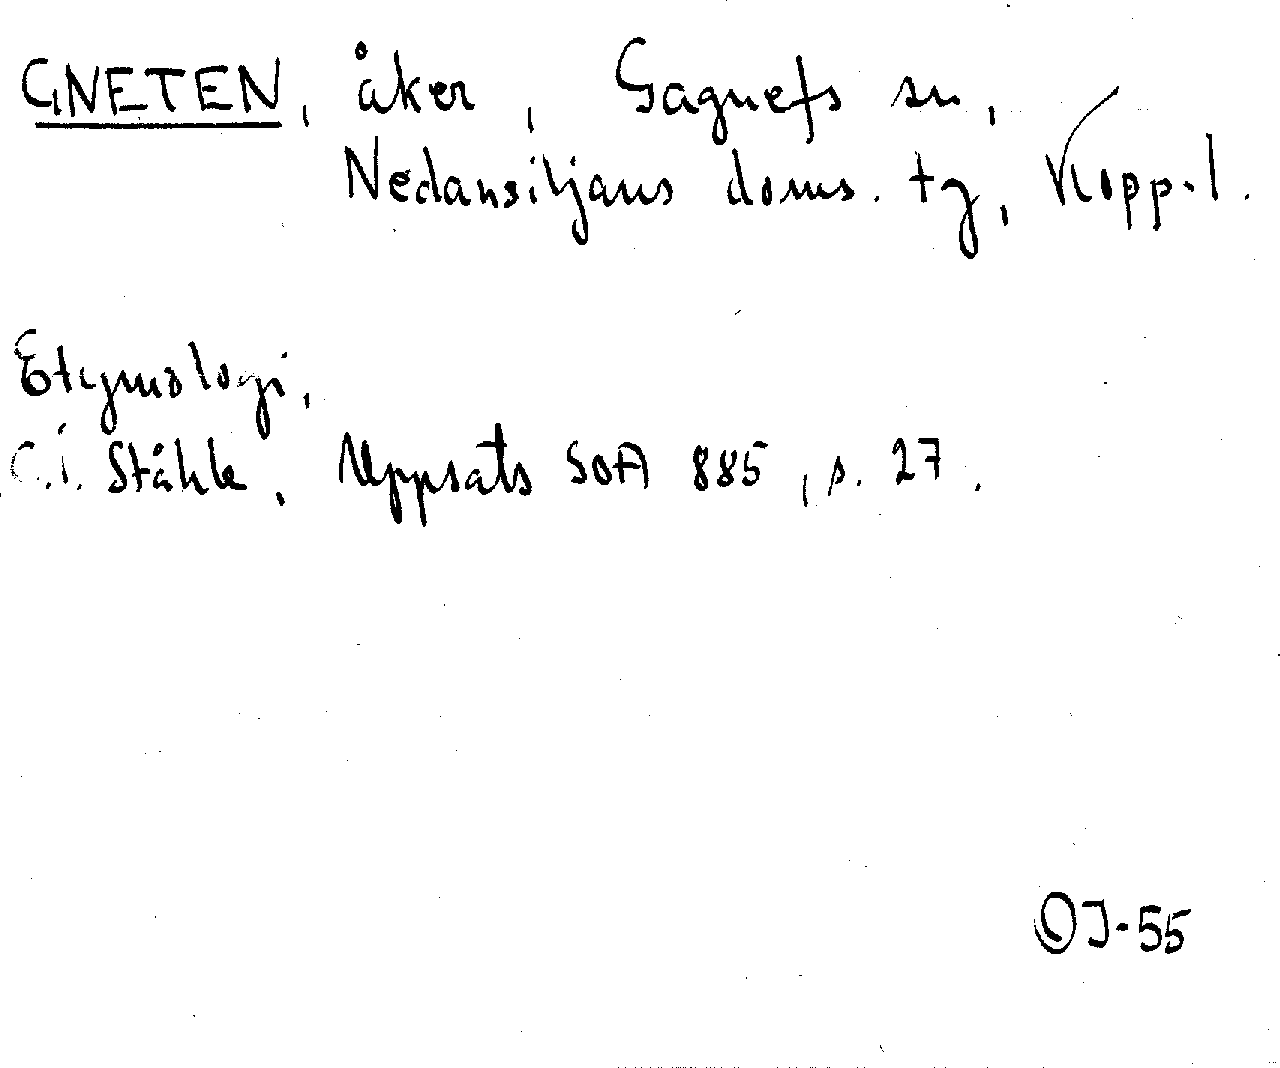 GNETEN, åker, Gagnefs sn,
Nedansiljans doms. tg, Kopp.l.
Etymologi,
C.I. Ståhle, Uppsats SOA 885, s. 27.
OJ-55